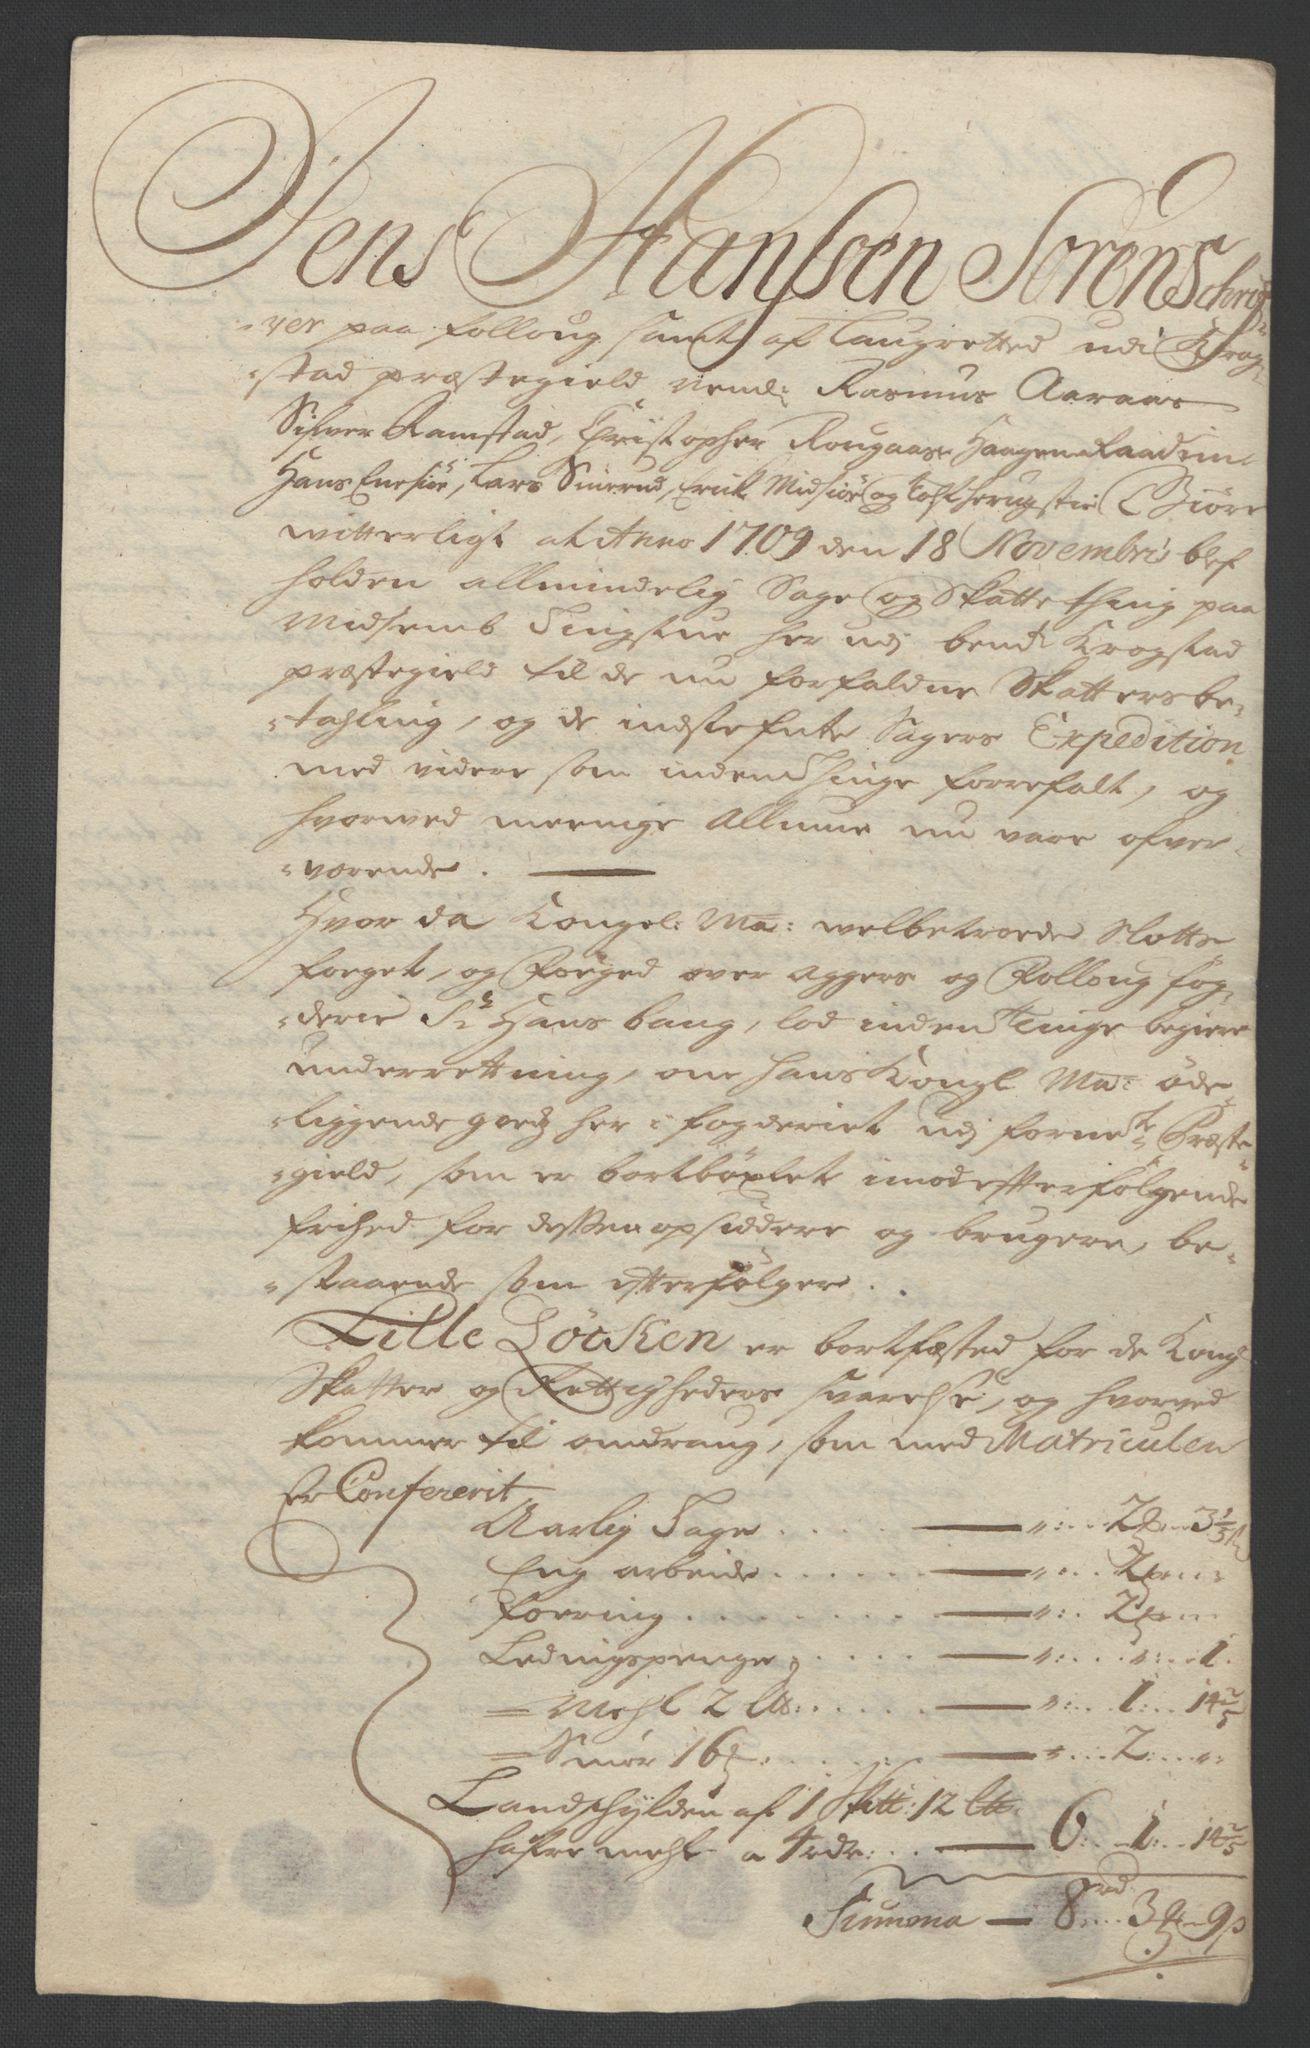 Jens Hansen Sorenschrif-
-ver paa Folloug samt af Laugretted udi Krog-
-stad præstegield, Neml: Rasmus Aaraas
Sifver Ramstad, Christopher Rougaas, Haagen Raadim
Hans Enesiøe, Lars Smerud, Erick Midsiøe og Giøre
witterligt at Anno 1709 den 18 Novembris blef
holden allmindelig Sage og Skatte thing paa
Midsemb Tingstue her udj bemte Krogstad
præstegield til de nu forfaldne Skatters be-
-tahling, og de indstefnte Sagers Expedition
med videre som inden Thinge forrefalt, og
hvorved meenige Allmue nu vare ofver-
-værende.
Hvor da Kongel: Ma: welbetroede Slotts
foeget, og Foeged over Aggers og Folloug fog-
-derie Sr Hans bang, lod inden Tinge begiere
underrettning, om hans Kongl Ma: øde-
-liggende goedz her i fogderiet udj fornefte Præste-
-gield, som er bortböxlet imod efterfølgende
frihed for dessen opsiddere og brugere, be-
-staaende som efterfølger.
Lille Löcken er bortfæsted for de Kongl
Skatter og Rettigheders svarelse, og hvorved
kommer til omdraug, som med Matriculen
Er Confererit
Aarlig Sage . . . . — ": . . 2 . . 3 1/5
Eng arbeide . . . . . — ": . . 2 . . "
Foering . . . . . . — ": . . 2 . . "
Ledingspenge . . . . — ": . . ": . . 1
= Mehl 2 . . . . — ": . . 1 . . 14 2/5
= Smör 16 . . . . — ": . . 2 . . ":
Landschylden af 1 Skitt: 12
hafre mehl a 4 rdr: . . — 6: . . 1: . . 14 2/5
Summa — 8 rd . . 3 . . 9 s